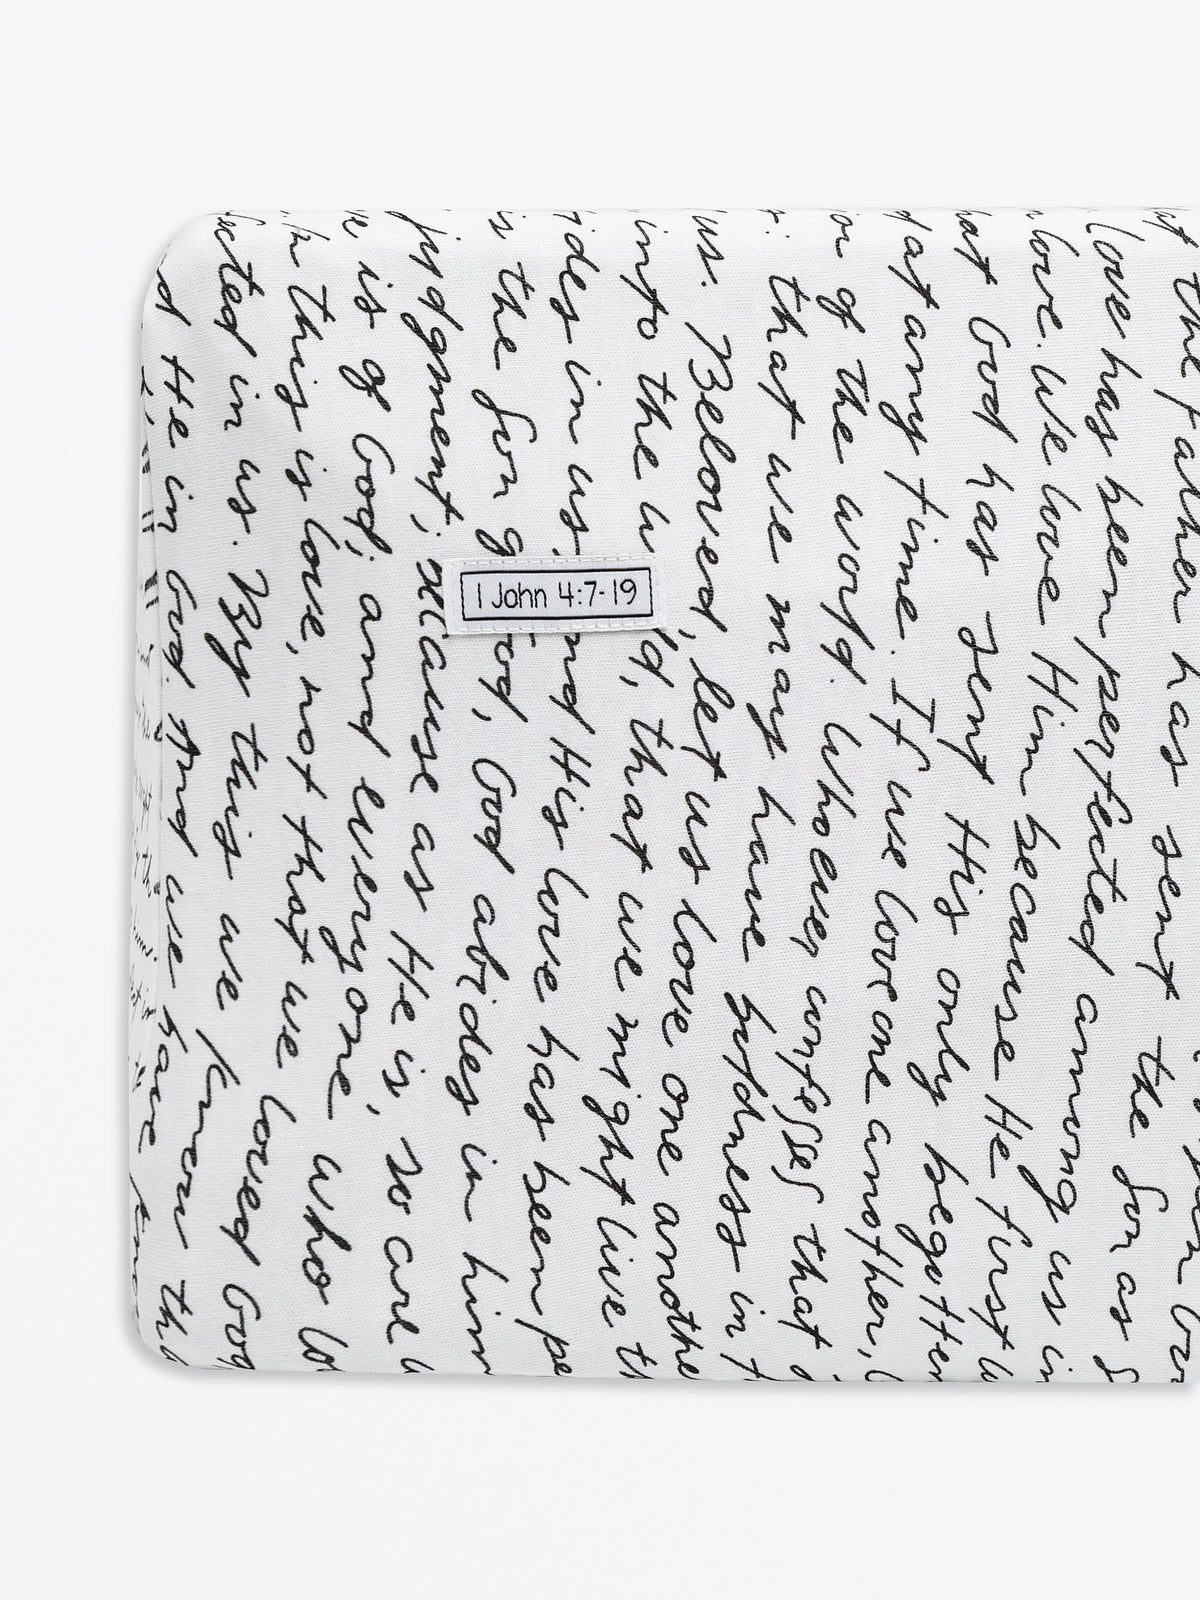 1 John 4:7-19
the Father has sent the Son as S
love has been perfected among us in
love. We love Him because He first
hat God has sent His only begotten
at any time. If we love one another,
or of the world. Whoever confesses that
that we may have boldness in
us. Beloved, let us love one anothe
into the w ld, that we might live th
ides in us, and His love has been pe
is the Son God, God abides in him
judgment; because as He is, so are
ve is of God; and everyone who lo
In this is love, not that we loved God
fected in us. By this we know
d He in God. And we have